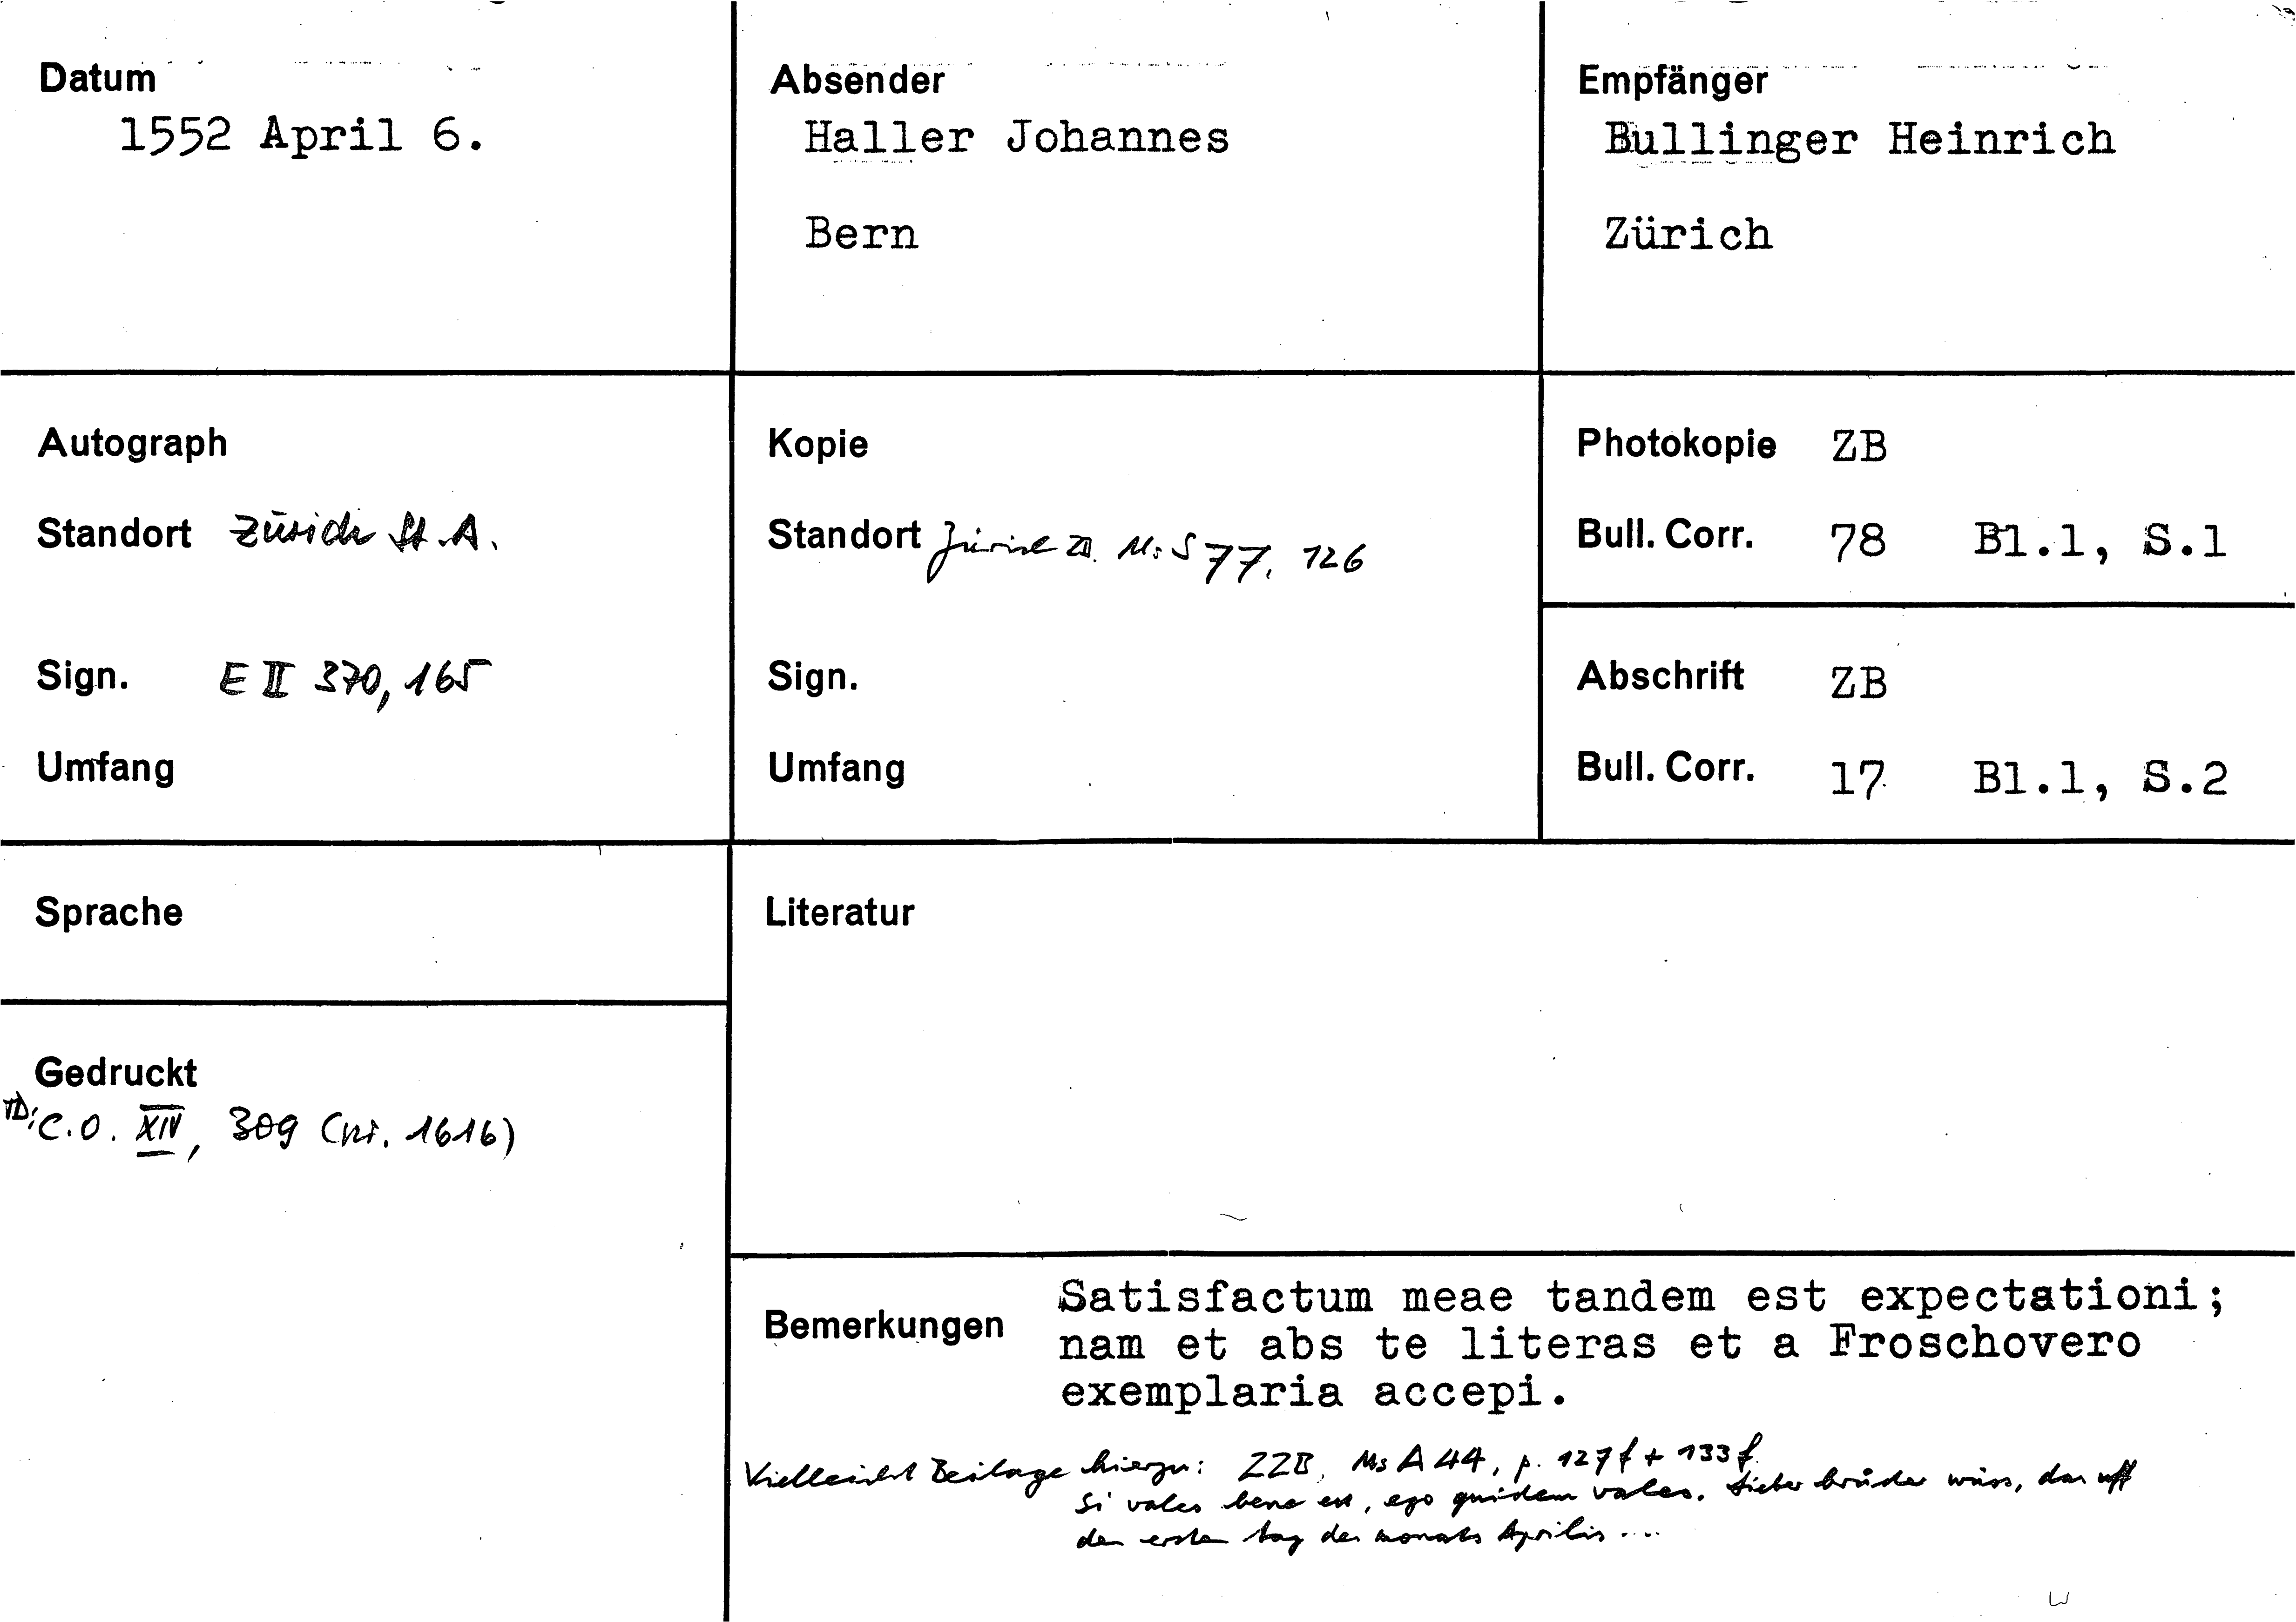 Datum
1552 April 6.
Absender
Haller Johannes
Bern
Empfänger
Bullinger Heinrich
Zürich
Autograph
Standort Zürich St.A.
Sign. E II 370, 165
Umfang
Kopie
Standort Zürich ZB. Ms S 77, 126
Sign.
Umfang
Photokopie ZB
Bull. Corr. 78 Bl.1, S.1
Abschrift ZB
Bull. Corr. 17 Bl.1, S.2
Sprache
Gedruckt
TD: C.O. XIV, 309 (nr. 1616)
Literatur
Bemerkungen
Satisfactum meae tandem est expectationi;
nam et abs te literas et a Froschovero
exemplaria accepi.
Vielleicht Beilage hierzu: ZZB, Ms A 44, p. 127f + 133f.
Si vales bene est, ego quidem valeo. Lieber brůder wüss, das uff
den ersten tag des monats Aprilis ....